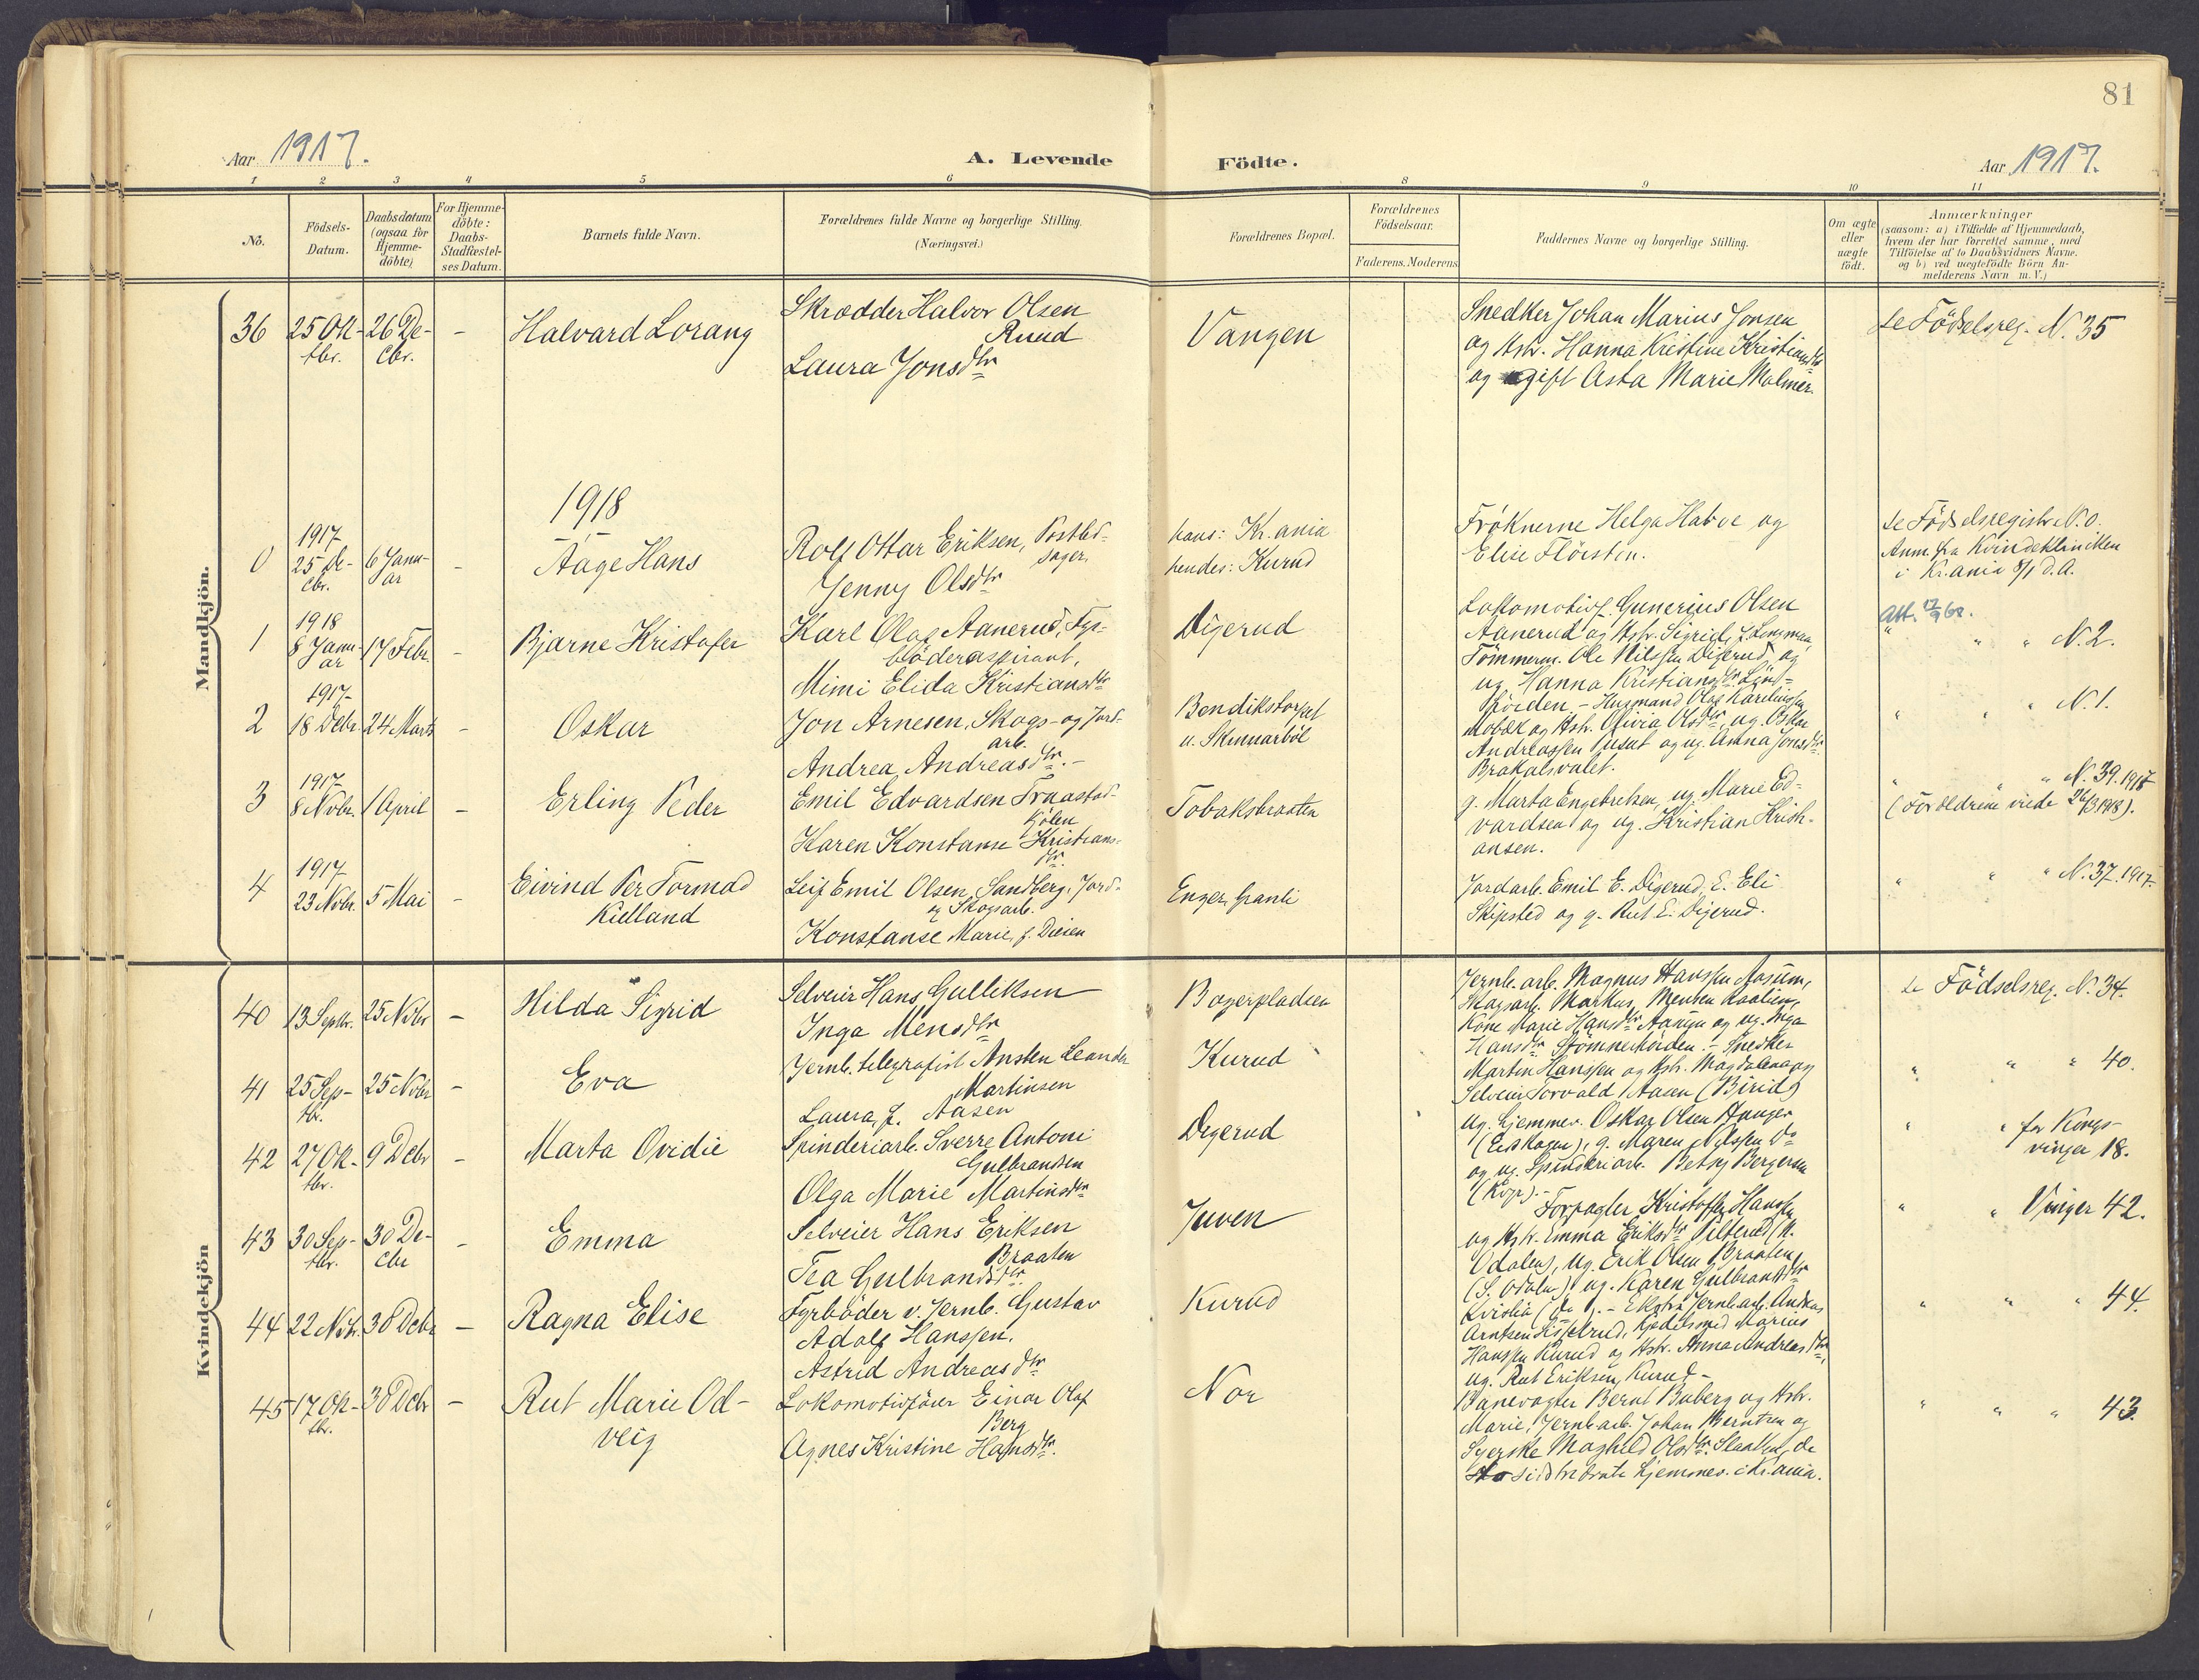 81
Aar 1917.
A. Levende Födte.
Aar 1917.
1 2 3 4 5 6 8 9 10 11
No.
Födsels-
Datum.
Daabsdatum
(ogsaa for
Hjemme-
döbte)
For Hjemme-
döbte:
Daabs-
Stadfæstel-
ses Datum.
Barnets fulde Navn.
Forældrenes fulde Navne og borgerlige Stilling.
(Næringsvei.)
Forældrenes Bopæl.
Forældrenes
Födselsaar.
Faderens. Moderens
Faddernes Navne og borgerlige Stilling.
Om ægte
eller
uægte
födt.
Anmærkninger
(saasom: a) i Tilfælde af Hjemmedaab,
hvem der har forrettet samme, med
Tilföielse af to Daabsvidners Navne.
og b) ved uægtefödte Börn An-
melderens Navn m. V.)
Mandkjön.
36
25 Ok-
tbr.
26 De-
cbr.
-
Halvard Lorang
Skrædder Halvor Olsen
Ruud
Laura Jonsdtr
Vangen
Snedker Johan Marius Jonsen
og Hstr. Hanna Kristine Kristiansdtr
og ugift Asta Marie Malmer.
se Födselsreg. N. 35
1918
0
1917
25 De-
cbr.
6 Janu-
ar
-
Aage Hans
Rolf Ottar Eriksen, Postbd-
Jenny Olsdtr
hans: Kr.ania
hendes: Kurud
Fröknerne Helga Habve og
Elise
se Födselsregistr. N. 0.
Anm. fra Kvindeklinikken
i Kr.ania 8/1 d.A.
1
1918
8 Janu-
ar
17 Febr.
-
Bjarne Kristofer
Karl Olaf Aanerud, Fyr-
böderaspirant,
Mimi Elida Kristiansdtr
Digerud
Lokomotivf. Gunerius Olsen
Aanerud og Hstr. Sigrid,
Tömmerm. Ole Nilssen Digerud, og
ug. Hanna Kristiansdtr
Att. 12/9 60.
" " " N. 2.
2
1917
18 Debr.
24 Marts
-
Oskar
Jon Arnesen, Skogs- og Jord-
arb.
Andrea Andreasdtr. -
Bendikstorpet
u. Skinnarböl
- Husmand Olaf
Mobæk og Hstr. Olivia Olsdtr, ug. Oskar
Andreassen og ug. Anna Jonsdtr
" " " N. 1.
3
1917
8 Novbr.
1 April
-
Erling Peder
Emil Edvardsen Traastad-
kjölen
Karen Konstanse Kristians-
dtr.
Tobaksbraaten
g. Marta Engebretsen, ug. Marie Ed-
vardsen og ug. Kristian Kristi-
ansen.
" " " N. 39. 1917
(Forældrene viede 26/3 1918).
4
1917
23 Novbr.
5 Mai
-
Eivind Per Tormod
Kielland
Leif Emil Olsen Sandberg, Jord-
og Skogsarb.
Konstanse Marie, f. Diesen
Enger, Granli
Jordarb. Emil E. Digerud, E. Eli
Skipsted og g. Rut E. Digerud.
" " " N. 37. 1917
Kvindekjön
40
13 Septbr.
25 Novbr
-
Hilda Sigrid
Selveier Hans Gulleksen
Inga Mensdtr
Bogerpladsen
Jernb. arb. Magnus Hanssen Aasum,
Skogsarb. Markus Mensen
Kone Marie Hansdtr og ug. Inga
Hansdtr
se Födselsreg. N. 34.
41
25 Sep-
tbr.
25 Novbr
-
Eva
Jernb. telegrafist Ansten Leander
Martinsen
Laura, f. Aasen
Kurud
- Snedker
Martin Hanssen og Hstr. Magdalena og
Selveier Torvald Aasen (Birid)
" " " 40.
42
27 Ok-
tbr.
9 Debr
-
Marta Ovidie
Spinderiarb. Sverre Antoni
Gulbrandsen
Olga Marie Martinsdtr
Digerud
ug. hjemmev. Oskar Olsen Stanger
(Eidskogen), g. Maren Nilssen do
og ug. Spinderiarb. Betsy Bergersen
(Kvgr). -
" " for Kongs-
vinger 18.
43
30 Sep-
tbr.
30 De-
cbr
-
Emma
Selveier Hans Eriksen
Braaten
Tea Gulbrandsdtr
Juven
Forpagter Kristoffer Hanssen
og Hstr. Emma Eriksdtr (N.
Odalen), ug. Erik Olsen Braaten
(S. Odalen), ug. Karen Gulbrandsdtr
" " Vinger 42.
44
22 Novbr.
30 Debr
-
Ragna Elise
Fyrböder v. Jernb. Gustav
Adolf Hanssen.
Astrid Andreasdtr
Kurud
- Ekstra Jernb.arb. Andreas
Arntsen Sisselrud, Kjedelsmed Marius
Hanssen Kurud og Hstr. Anna Andreasdtr,
ug. Rut Eriksen, Kurud -
" " " 44.
45
17 Ok-
tbr.
30 Debr
-
Rut Marie Od-
veig
Lokomotivförer Einar Olaf
Berg
Agnes Kristine Hansdtr.
Nor
Banevogter Bernt Buberg og Hstr.
Marie, Jernb.arb. Johan Berntsen og
Syerske Maghild Olsdtr. Slaatten, de
to sidste hjemmev. i Kr.ania.
" " " 43.